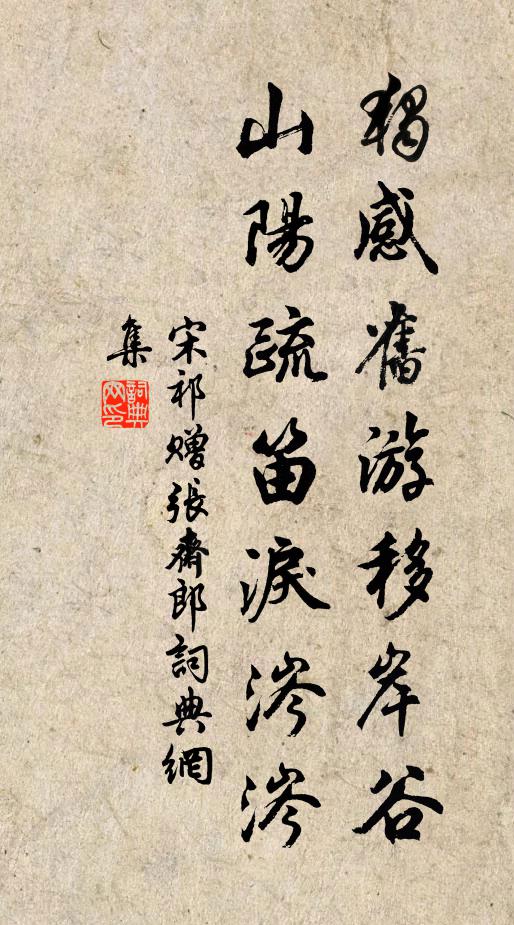 獨感舊游移岸谷
山陽疏笛淚涔涔
宋祁赠張齋郎詞典網
集
詞典
网印